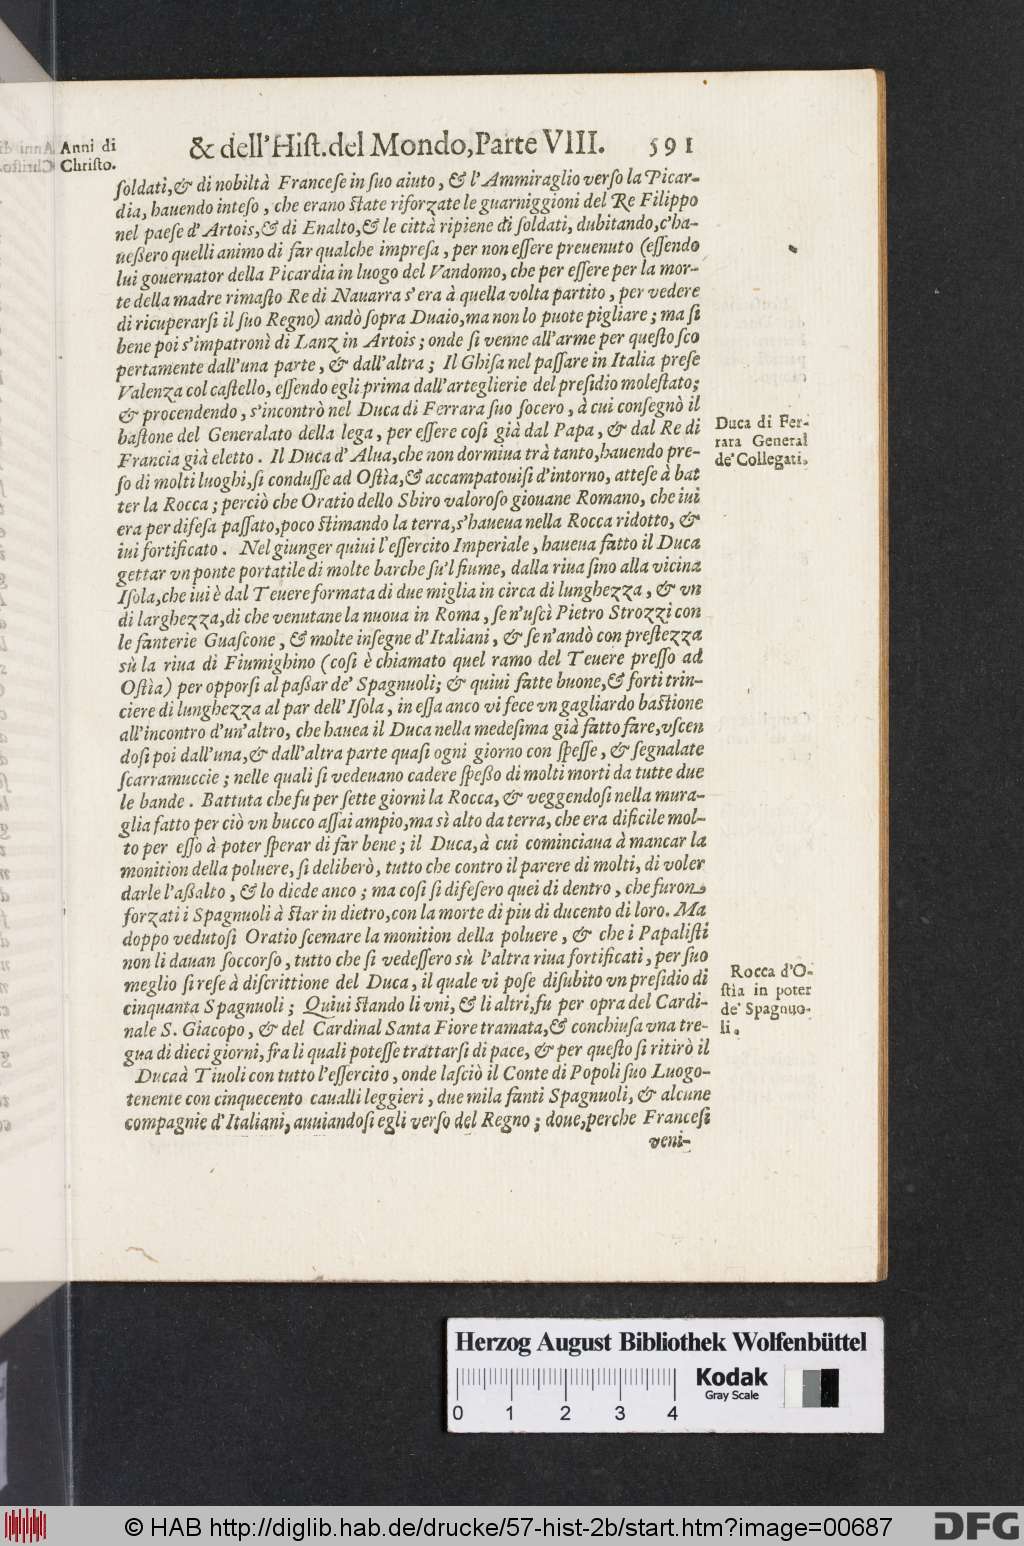 Anni di
Christo.
& dell'Hist. del Mondo, Parte VIII. 591
soldati, & di nobiltà Francese in suo aiuto, & l'Ammiraglio verso la Picar-
dia, hauendo inteso, che erano state riforzate le guarniggioni del Re Filippo
nel paese d'Artois, & di Enalto, & le città ripiene di soldati, dubitando, c'ha-
uessero quelli animo di far qualche impresa, per non essere preuenuto (essendo
lui gouernator della Picardia in luogo del Vandomo, che per essere per la mor-
te della madre rimasto Re di Nauarra s'era à quella volta partito, per vedere
di ricuperarsi il suo Regno) andò sopra Duaio, ma non lo puote pigliare; ma si
bene poi s'impatronì di Lanz in Artois; onde si venne all'arme per questo sco
pertamente dall'una parte, & dall'altra; Il Ghisa nel passare in Italia prese
Valenza col castello, essendo egli prima dall'arteglierie del presidio molestato;
& procendendo, s'incontrò nel Duca di Ferrara suo socero, à cui consegnò il
bastone del Generalato della lega, per essere cosi già dal Papa, & dal Re di
Francia già eletto. Il Duca d'Alua, che non dormiua trà tanto, hauendo pre-
so di molti luoghi, si condusse ad Ostia, & accampatouisi d'intorno, attese à bat
ter la Rocca; perciò che Oratio dello Sbiro valoroso giouane Romano, che iui
era per difesa passato, poco stimando la terra, s'haueua nella Rocca ridotto, &
iui fortificato. Nel giunger quiui l'essercito Imperiale, haueua fatto il Duca
gettar vn ponte portatile di molte barche su'l fiume, dalla riua sino alla vicina
Isola, che iui è dal Teuere formata di due miglia in circa di lunghezza, & vn
di larghezza, di che venutane la nuoua in Roma, se n'uscì Pietro Strozzi con
le fanterie Guascone, & molte insegne d'Italiani, & se n'andò con prestezza
sù la riua di Fiumighino (cosi è chiamato quel ramo del Teuere presso ad
Ostia) per opporsi al passar de' Spagnuoli; & quiui fatte buone, & forti trin-
ciere di lunghezza al par dell'Isola, in essa anco vi fece vn gagliardo bastione
all'incontro d'un'altro, che hauea il Duca nella medesima già fatto fare, vscen
dosi poi dall'una, & dall'altra parte quasi ogni giorno con spesse, & segnalate
scarramuccie; nelle quali si vedeuano cadere spesso di molti morti da tutte due
le bande. Battuta che fu per sette giorni la Rocca, & veggendosi nella mura-
glia fatto per ciò vn bucco assai ampio, ma sì alto da terra, che era dificile mol-
to per esso à poter sperar di far bene; il Duca, à cui cominciaua à mancar la
monition della poluere, si deliberò, tutto che contro il parere di molti, di voler
darle l'assalto, & lo diede anco; ma cosi si difesero quei di dentro, che furono
forzati i Spagnuoli à star in dietro, con la morte di piu di ducento di loro. Ma
doppo vedutosi Oratio scemare la monition della poluere, & che i Papalisti
non li dauan soccorso, tutto che si vedessero sù l'altra riua fortificati, per suo
meglio si rese à discrittione del Duca, il quale vi pose disubito vn presidio di
cinquanta Spagnuoli; Quiui stando li vni, & li altri, fu per opra del Cardi-
nale S. Giacopo, & del Cardinal Santa Fiore tramata, & conchiusa vna tre-
gua di dieci giorni, fra li quali potesse trattarsi di pace, & per questo si ritirò il
Duca à Tiuoli con tutto l'essercito, onde lasciò il Conte di Popoli suo Luogo-
tenente con cinquecento caualli leggieri, due mila fanti Spagnuoli, & alcune
compagnie d'Italiani, auuiandosi egli verso del Regno; doue, perche Francesi
veni-
Duca di Fer-
rara General
de' Collegati.
Rocca d'O-
stia in poter
de' Spagnuo-
li.
Herzog August Bibliothek Wolfenbüttel
Kodak
Gray Scale
0 1 2 3 4
© HAB http://diglib.hab.de/drucke/57-hist-2b/start.htm?image=00687
DFG